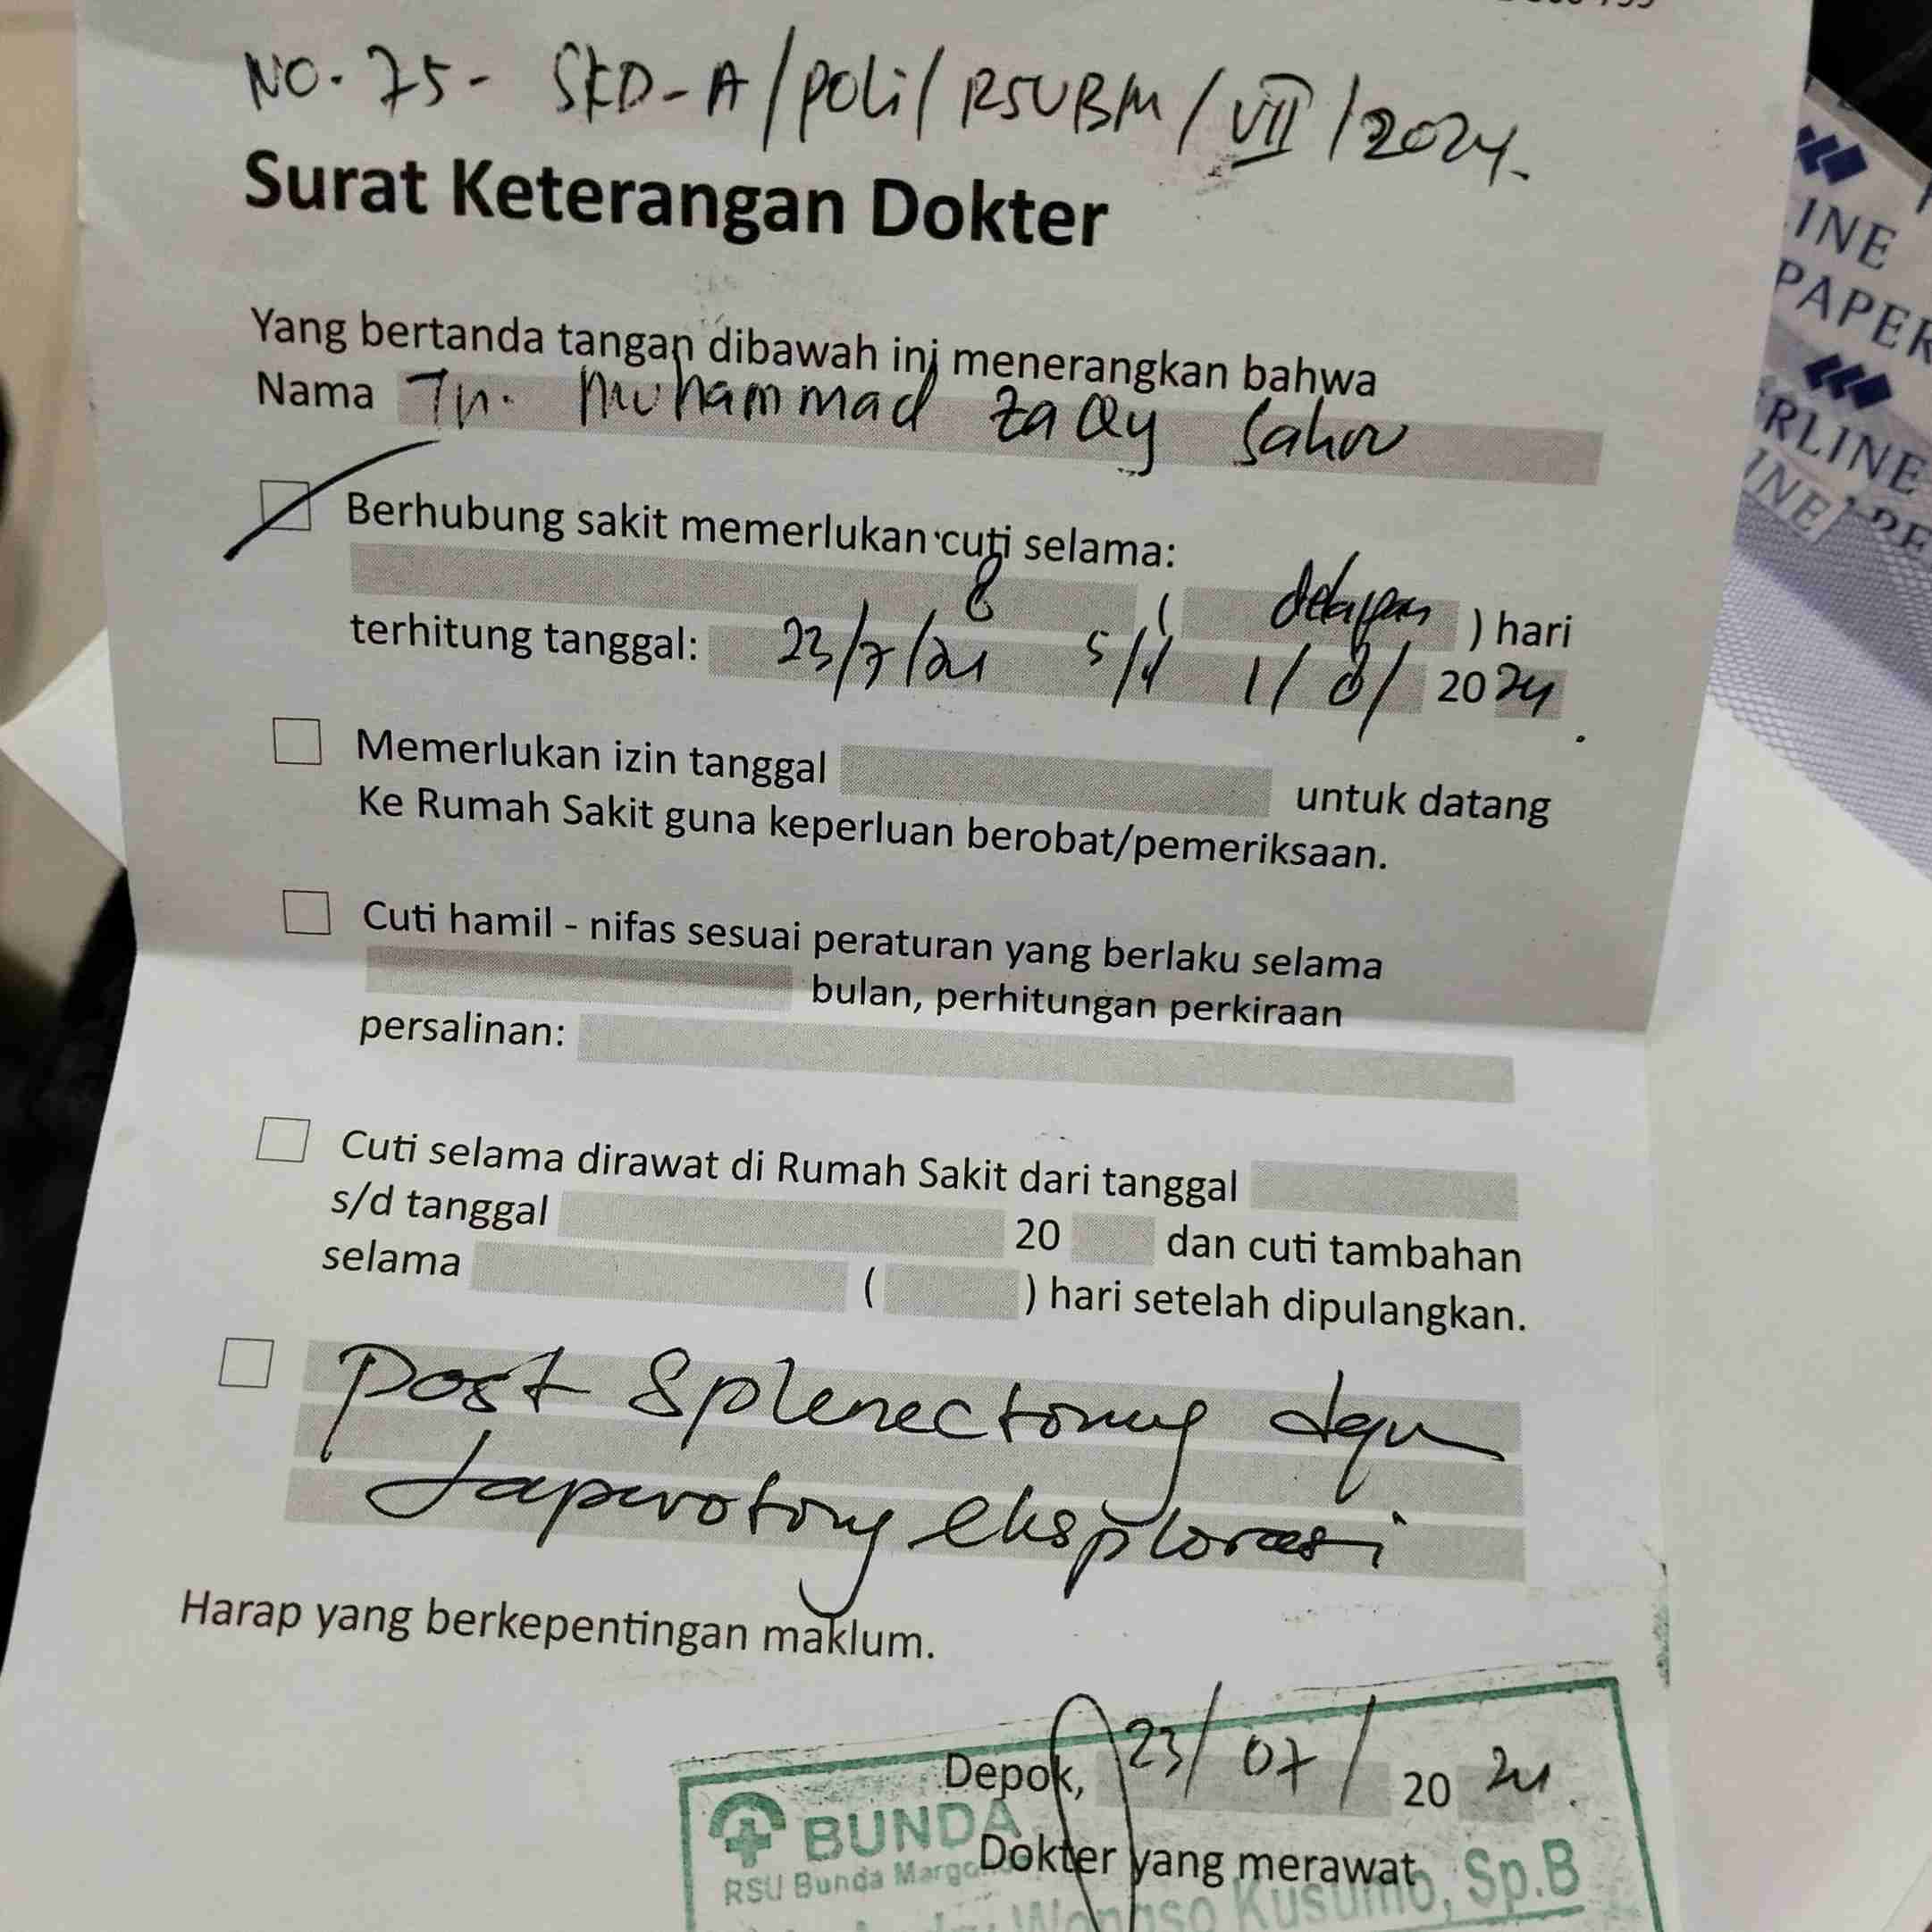 NO. 75 - SKD-A/POLI/RSUBM/VII/2024.
Surat Keterangan Dokter
Yang bertanda tangan dibawah ini menerangkan bahwa
Nama Tn. Muhammad Zaqy
Berhubung sakit memerlukan cuti selama:
8 ( delapan ) hari
terhitung tanggal: 23/7/24 s/d 1/8/2024.
Memerlukan izin tanggal untuk datang
Ke Rumah Sakit guna keperluan berobat/pemeriksaan.
Cuti hamil - nifas sesuai peraturan yang berlaku selama
bulan, perhitungan perkiraan
persalinan:
Cuti selama dirawat di Rumah Sakit dari tanggal
s/d tanggal 20 dan cuti tambahan
selama ( ) hari setelah dipulangkan.
Post Splenectomy dgn
Laparotomy eksplorasi
Harap yang berkepentingan maklum.
Depok, 23/07/2024.
BUNDA
Dokter yang merawat
RSU Bunda
Kusumo, Sp.B
INE
PAPER
RLINE
INE